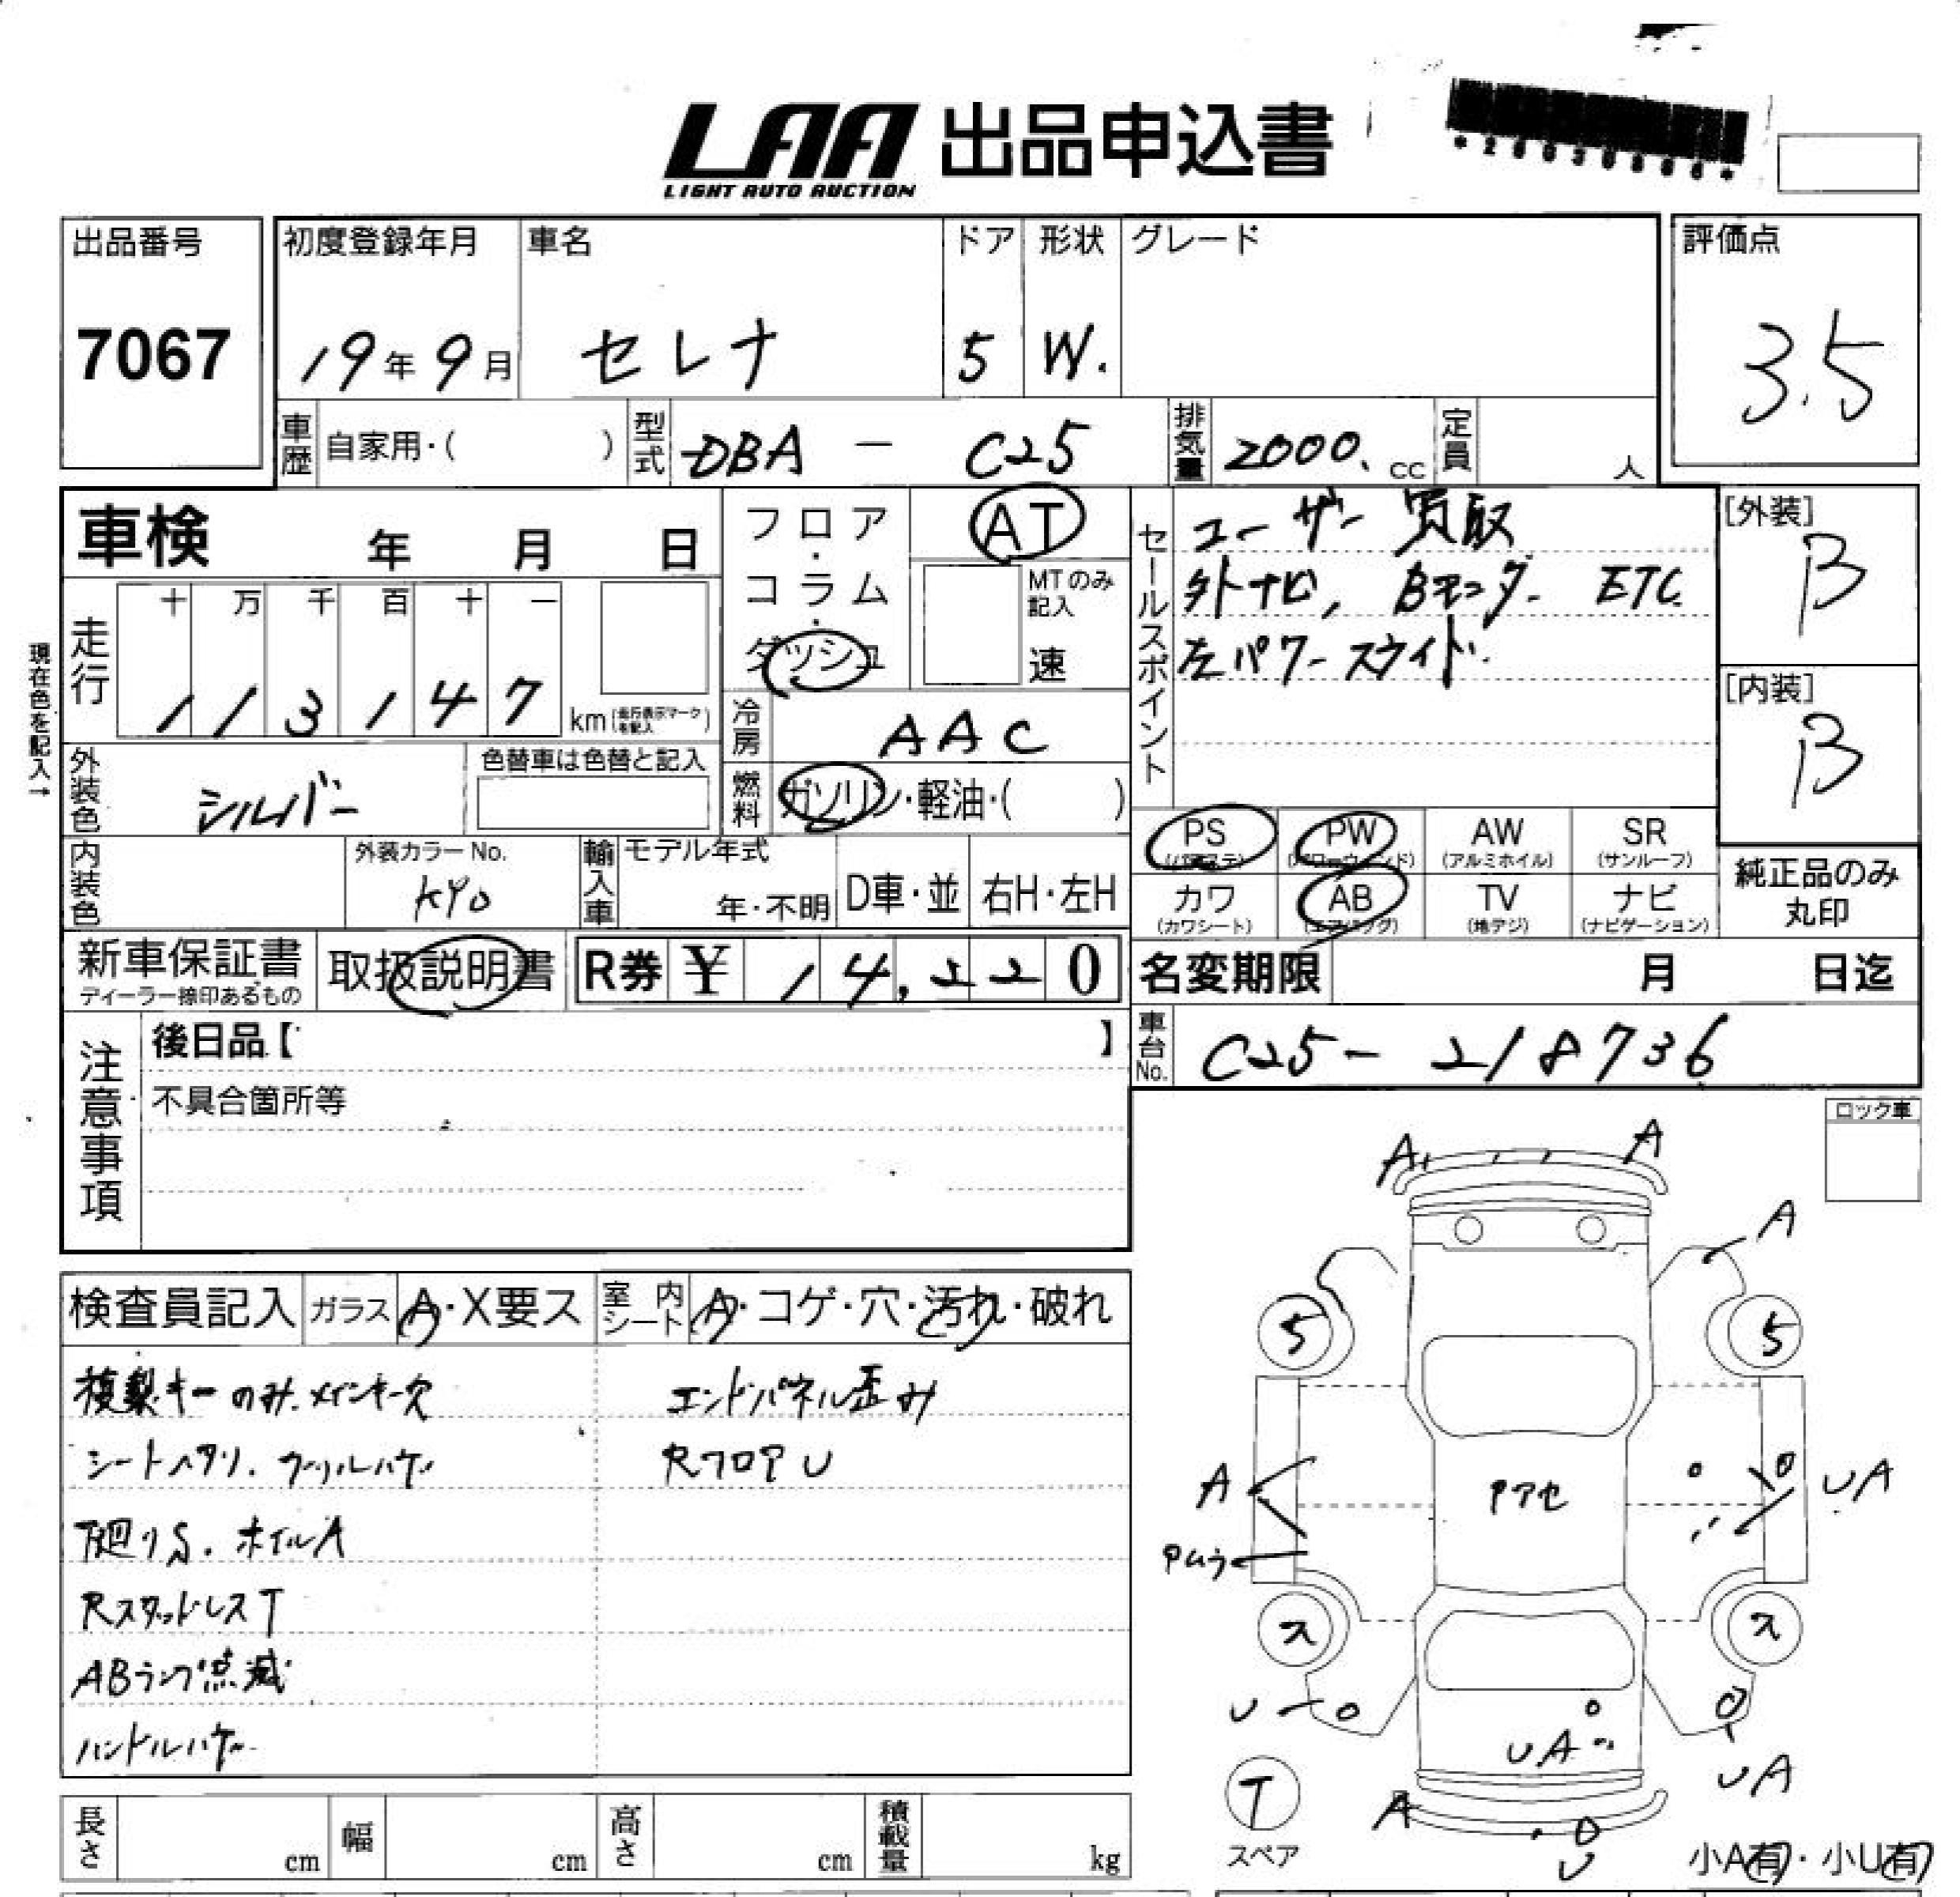 LAA 出品申込書
LIGHT AUTO AUCTION
出品番号
7067
初度登録年月
19年9月
車名
セレナ
ドア
5
形状
W.
グレード
評価点
3.5
車歴 自家用・( )
型式 DBA - C25
排気量 2000. cc
定員 人
車検 年 月 日
フロア・コラム・ダッシュ
AT
MTのみ記入
速
セールスポイント
ユーザー買取
外ナビ, Bモニター ETC
左パワースライド
[外装]
B
[内装]
B
現在色を記入→
走行
十 万 千 百 十 一
1 1 3 1 4 7 km
冷房 AAC
外装色 シルバー
色替車は色替と記入
燃料 ガソリン・軽油・( )
内装色
外装カラーNo.
KY0
輸入車
モデル年式
年・不明
D車・並
右H・左H
PS
PW
(パワーウィンド)
AW
(アルミホイル)
SR
(サンルーフ)
カワ
(カワシート)
AB
(エアバッグ)
TV
(地デジ)
ナビ
(ナビゲーション)
純正品のみ
丸印
新車保証書
ディーラー捺印あるもの
取扱説明書
R券 ¥ 14,220
名変期限 月 日迄
車台No. C25- 218736
注意事項
後日品【 】
不具合箇所等
ロック車
検査員記入
ガラス A・X要ス
室内シート A・コゲ・穴・汚れ・破れ
複製キーのみ.メインキー欠
シートヘタリ.グリルハゲ
下廻りS.ホイルA
Rスタッドレス T
ABランプ点滅
ハンドルハゲ
エンドパネル歪み
RフロアU
A
A
A
5
5
A
Pアセ
UA
Pムラ
ス
ス
U
UA
UA
T
スペア
A
U
小A有・小U有
長さ cm
幅 cm
高さ cm
積載量 kg